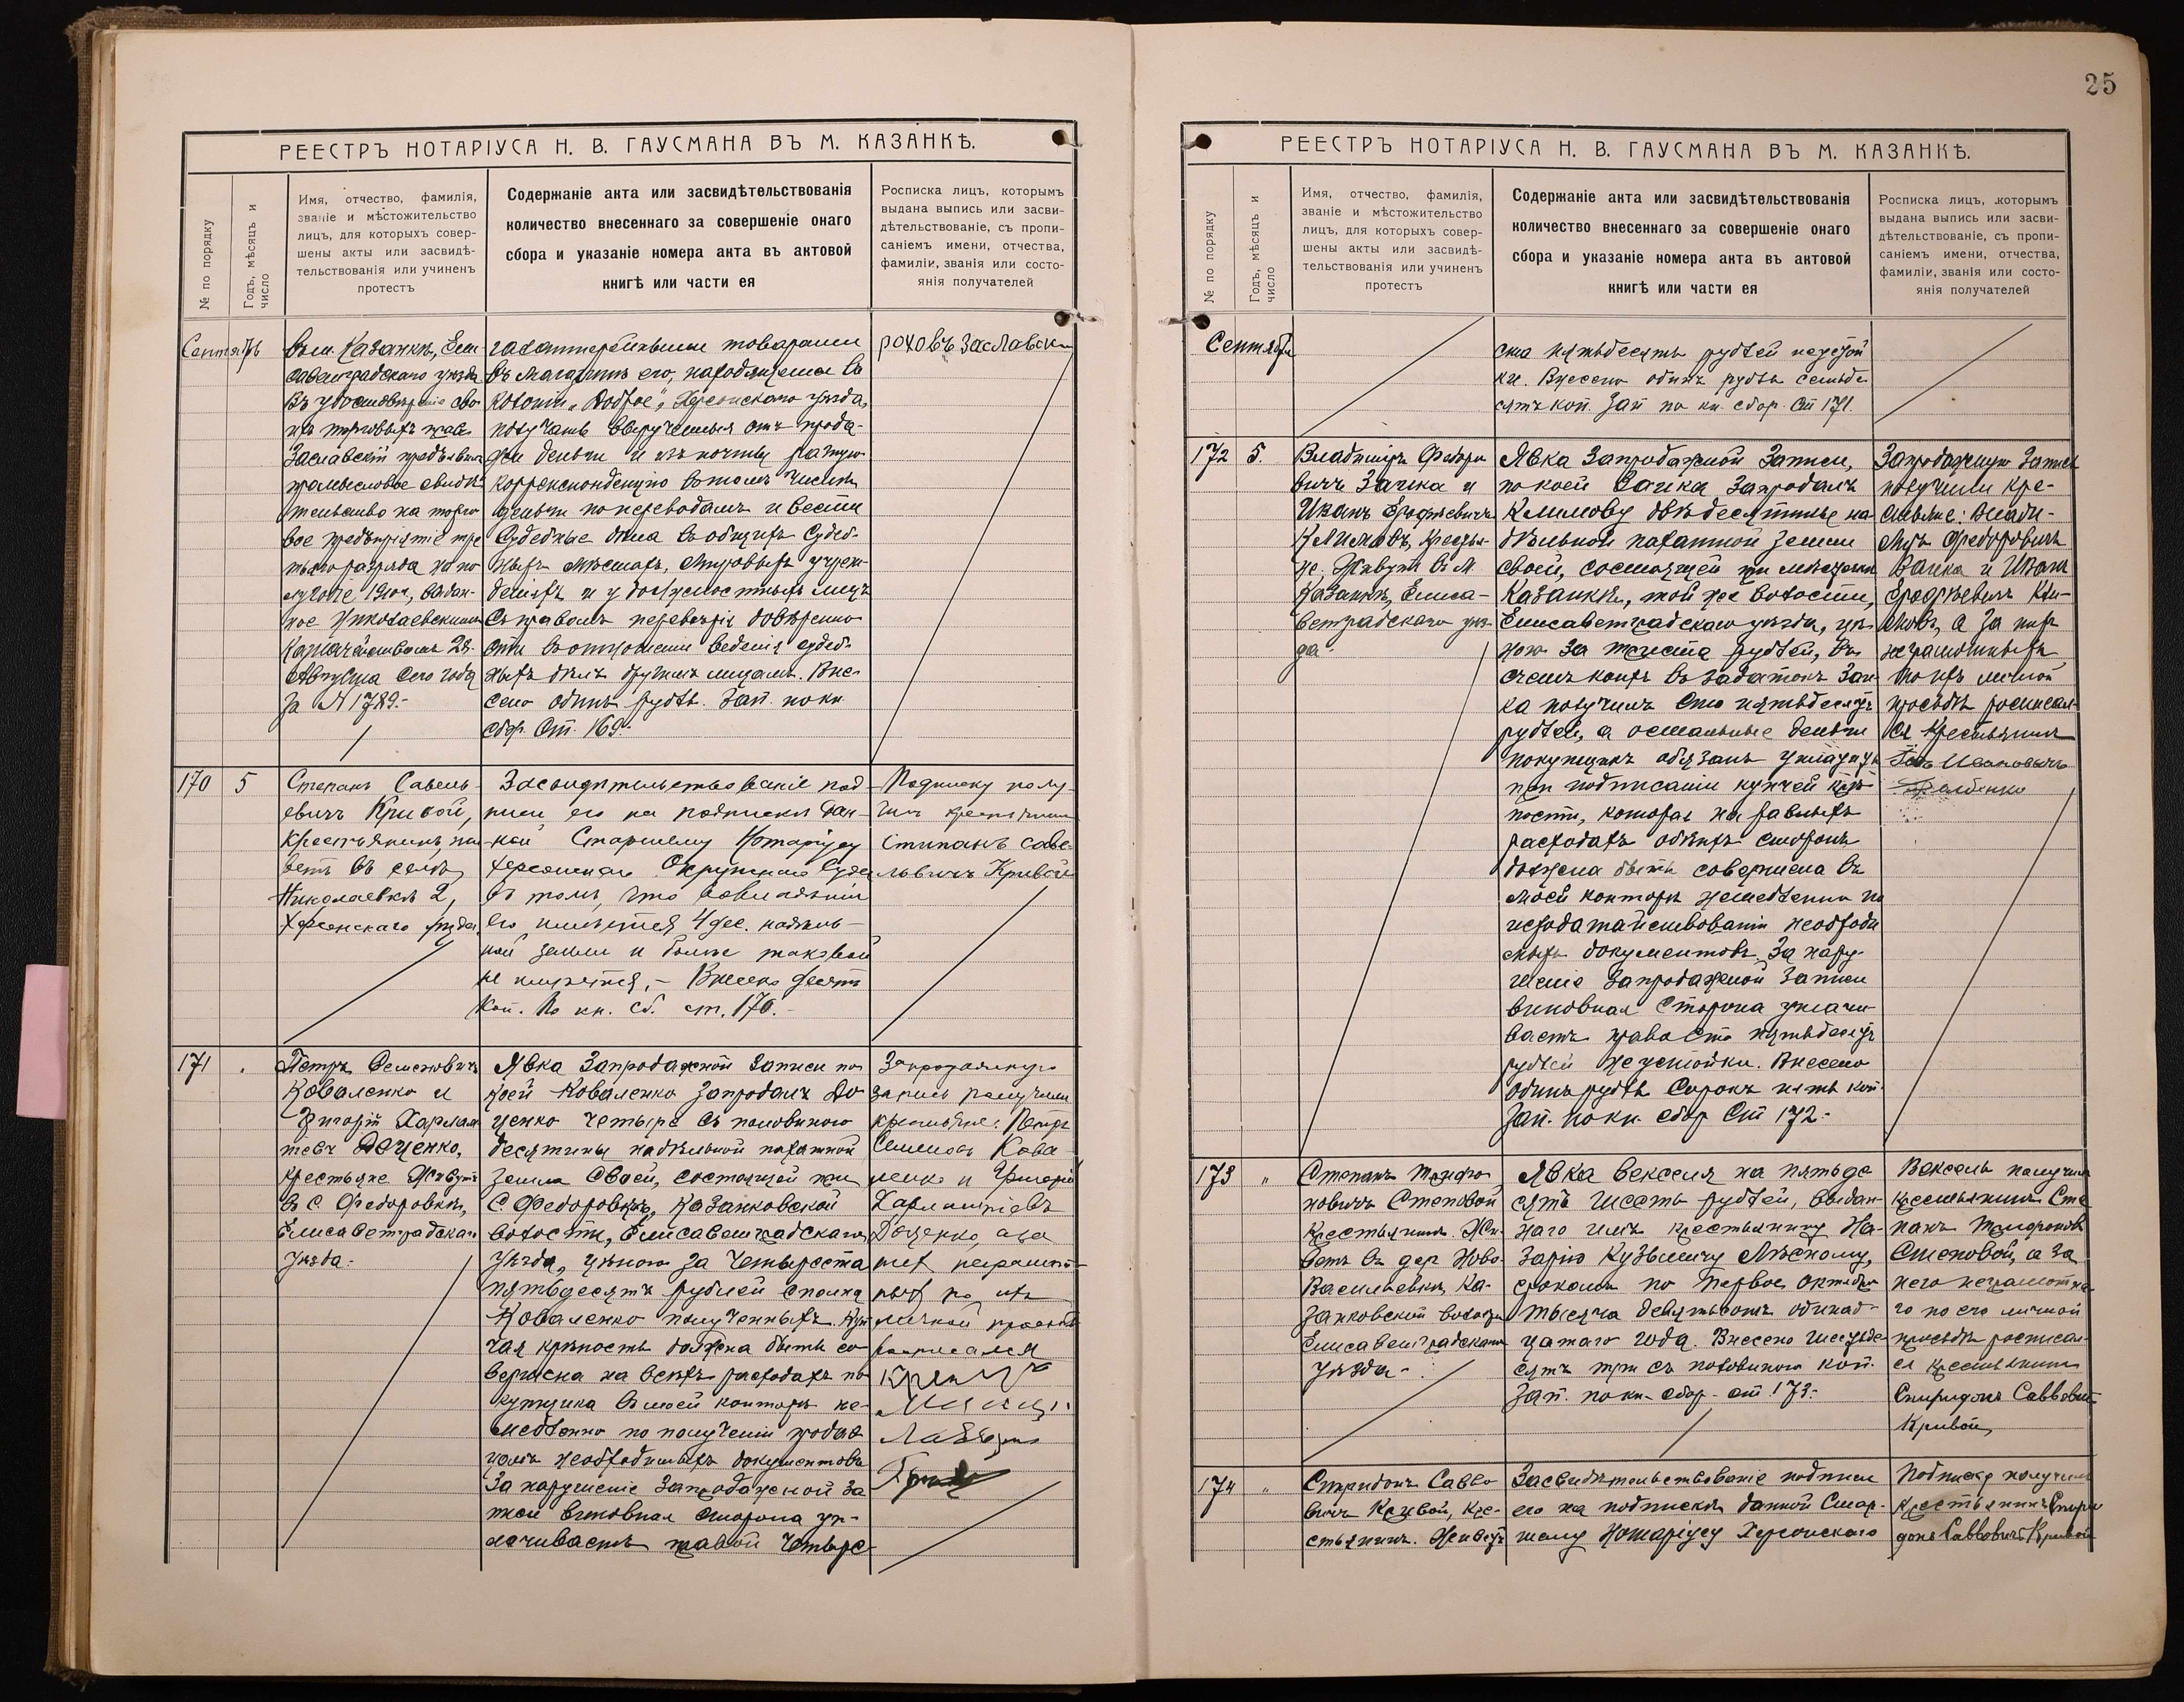 РЕЕСТРЪ НОТАРІУСА Н. В. ГАУСМАНА ВЪ М. КАЗАНКѢ.
№ по порядку
Годъ, мѣсяцъ и
число
Имя, отчество, фамилія,
званіе и мѣстожительство
лицъ, для которыхъ совер-
шены акты или засвидѣ-
тельствованія или учиненъ
протестъ
Содержаніе акта или засвидѣтельствованія
количество внесеннаго за совершеніе онаго
сбора и указаніе номера акта въ актовой
книгѣ или части ея
Росписка лицъ, которымъ
выдана выпись или засви-
дѣтельствованіе, съ пропи-
саніемъ имени, отчества,
фамиліи, званія или состо-
янія получателей
Сентябрь
въ м. Казанкѣ, Ели-
саветградскаго уѣзда
Въ удостовѣреніе сво-
ихъ торговыхъ правъ
Заславскій предъявилъ
промысловое свидѣ-
тельство на торго-
вое предпріятіе тре
тьяго разряда на по-
лугодіе 1910 г., выдан-
ное Николаевскимъ
Казначействомъ 28
Августа сего года
за № 1789.-
галантерейными товарами
въ магазинѣ его, находящемся въ
колоніи „Доброе", Херсонскаго уѣзда,
получать вырученныя отъ прода-
жи деньги и изъ почты разную
корреспонденцію въ томъ числѣ и
деньги по переводамъ и вести
Судебные дѣла въ общихъ Судеб-
ныхъ мѣстахъ, мировыхъ учреж-
деніяхъ и у должностныхъ лицъ
Съ правомъ перевѣрія довѣренно
сти въ отношеніи веденія судеб-
ныхъ дѣлъ другимъ лицамъ. Вне-
сено одинъ рубль. Зап. по кн.
сбор. Ст. 169.-
роховъ Заславскі
170
5
Степанъ Савель-
евичъ Кривой,
Крестьянинъ жи-
ветъ въ селѣ
Николаевкѣ 2,
Херсонскаго уѣзда.
Засвидѣтельствованіе под-
писи его на подпискѣ дан-
ной Старшему Нотаріусу
Херсонскаго Окружнаго Суда
въ томъ, что во владѣніи
его имѣется 4 дес. надѣль-
ной земли и болѣе таковой
не имѣется,- Внесено десять
Коп. По кн. Сб. ст. 170.-
Подписку полу-
чилъ крестьянинъ
Стипанъ Саве-
львичъ Кривой
171
Петръ Семеновичъ
Коваленко и
Григорій Харлам
піевъ Доценко,
крестьяне Живутъ
въ С. Федоровкѣ,
Елисаветградскаго
Уѣзда.-
Явка Запродажной Записи по
коей Коваленко Запродалъ До
ценко четыре съ половиною
десятины надѣльной пахатной
Земли Своей, состоящей при
С. Федоровкѣ, Казанковской
волости, Елисаветградскаго
Уѣзда, цѣною за Четыреста
пятьдесятъ рублей сполна
Коваленко полученныхъ. Куп
чая крѣпость должна быть со
вершена на всѣхъ расходахъ по
купщика въ моей конторѣ не-
медленно по полученіи продав
цомъ необходимыхъ документовъ
За нарушеніе Запродажной За
писи виновная сторона уп-
лачиваетъ правой Четыре
Запродажную
запись получили
крестьяне: Петръ
Семеновъ Кова
ленко и Григорій
Харлампіевъ
Доценко, а за
нихъ неграмот-
ныхъ по ихъ
личной просьбѣ
росписался
25
РЕЕСТРЪ НОТАРІУСА Н. В. ГАУСМАНА ВЪ М. КАЗАНКѢ.
№ по порядку
Годъ, мѣсяцъ и
число
Имя, отчество, фамилія,
званіе и мѣстожительство
лицъ, для которыхъ совер-
шены акты или засвидѣ-
тельствованія или учиненъ
протестъ
Содержаніе акта или засвидѣтельствованія
количество внесеннаго за совершеніе онаго
сбора и указаніе номера акта въ актовой
книгѣ или части ея
Росписка лицъ, которымъ
выдана выпись или засви-
дѣтельствованіе, съ пропи-
саніемъ имени, отчества,
фамиліи, званія или состо-
янія получателей
Сентябрь
ста пятьдесятъ рублей неустой
ки. Внесено одинъ рубль семьде
сятъ коп. Зап по кн. сбор. Ст 171.
172
5.
Владиміръ Федоро
вичъ Заика и
Иванъ Ерофѣевичъ
Климовъ, Крестья-
не. Живутъ въ М.
Казанкѣ, Елиса-
ветградскаго уѣз-
да.-
Явка Запродажной Записи,
по коей Заика Запродалъ
Климову двѣ десятины на
дѣльной пахатной земли
своей, состоящей при мѣстечкѣ
Казанкѣ, той же волости,
Елисаветградскаго уѣзда, цѣ-
ною за триста рублей, въ
счетъ коихъ въ задатокъ Заи
ка получилъ Сто пятьдесятъ
рублей, а остальные деньги
покупщикъ обязанъ уплатить
при подписаніи купчей крѣ-
пости, которая на равныхъ
расходахъ обѣихъ сторонъ
должна быть совершена въ
моей конторѣ немедленно по
исходатайствованіи необходи
мыхъ документовъ. За нару-
шеніе Запродажной Записи
виновная Сторона уплачи
ваетъ правой Сто пятьдесятъ
рублей неустойки. Внесено
одинъ рубль Сорокъ пять коп.
Зап. по кн. сбор Ст 172.-
Запродажную Запись
получили Кре-
стьяне: Влади-
міръ Федоровичъ
Заика и Иванъ
Ерофѣевичъ Кли-
мовъ, а за нихъ
неграмотныхъ
по ихъ личной
просьбѣ росписал-
ся Крестьянинъ
Ивановичъ
173
"
Степанъ Трифо
новичъ Степовой
Крестьянинъ. Жи-
ветъ въ дер. Ново-
Васильевкѣ, Ка-
занковской волости
Елисаветградскаго
Уѣзда.-
Явка векселя на пятьде
сятъ шесть рублей, выдан-
наго имъ крестьянину На-
зарію Кузьмичу Лѣсному,
срокомъ по Первое октября
тысяча девятьсотъ одинад-
цатаго года. Внесено шестьде
сятъ три съ половиною коп.
Зап. по кн. сбор. ст 173.-
Вексель получилъ
крестьянинъ Сте
панъ Трифоновъ
Степовой, а за
него неграмотна-
го по его личной
просьбѣ росписал-
ся крестьянинъ
Спиридонъ Саввовичъ
Кривой
174
"
Спиридонъ Савво
вичъ Кривой, Кре-
стьянинъ. Живетъ
Засвидѣтельствованіе подписи
его на подпискѣ данной Стар-
шему Нотаріусу Херсонскаго
Подписку получилъ
Крестьянинъ Спири
донъ Саввовичъ Кривой